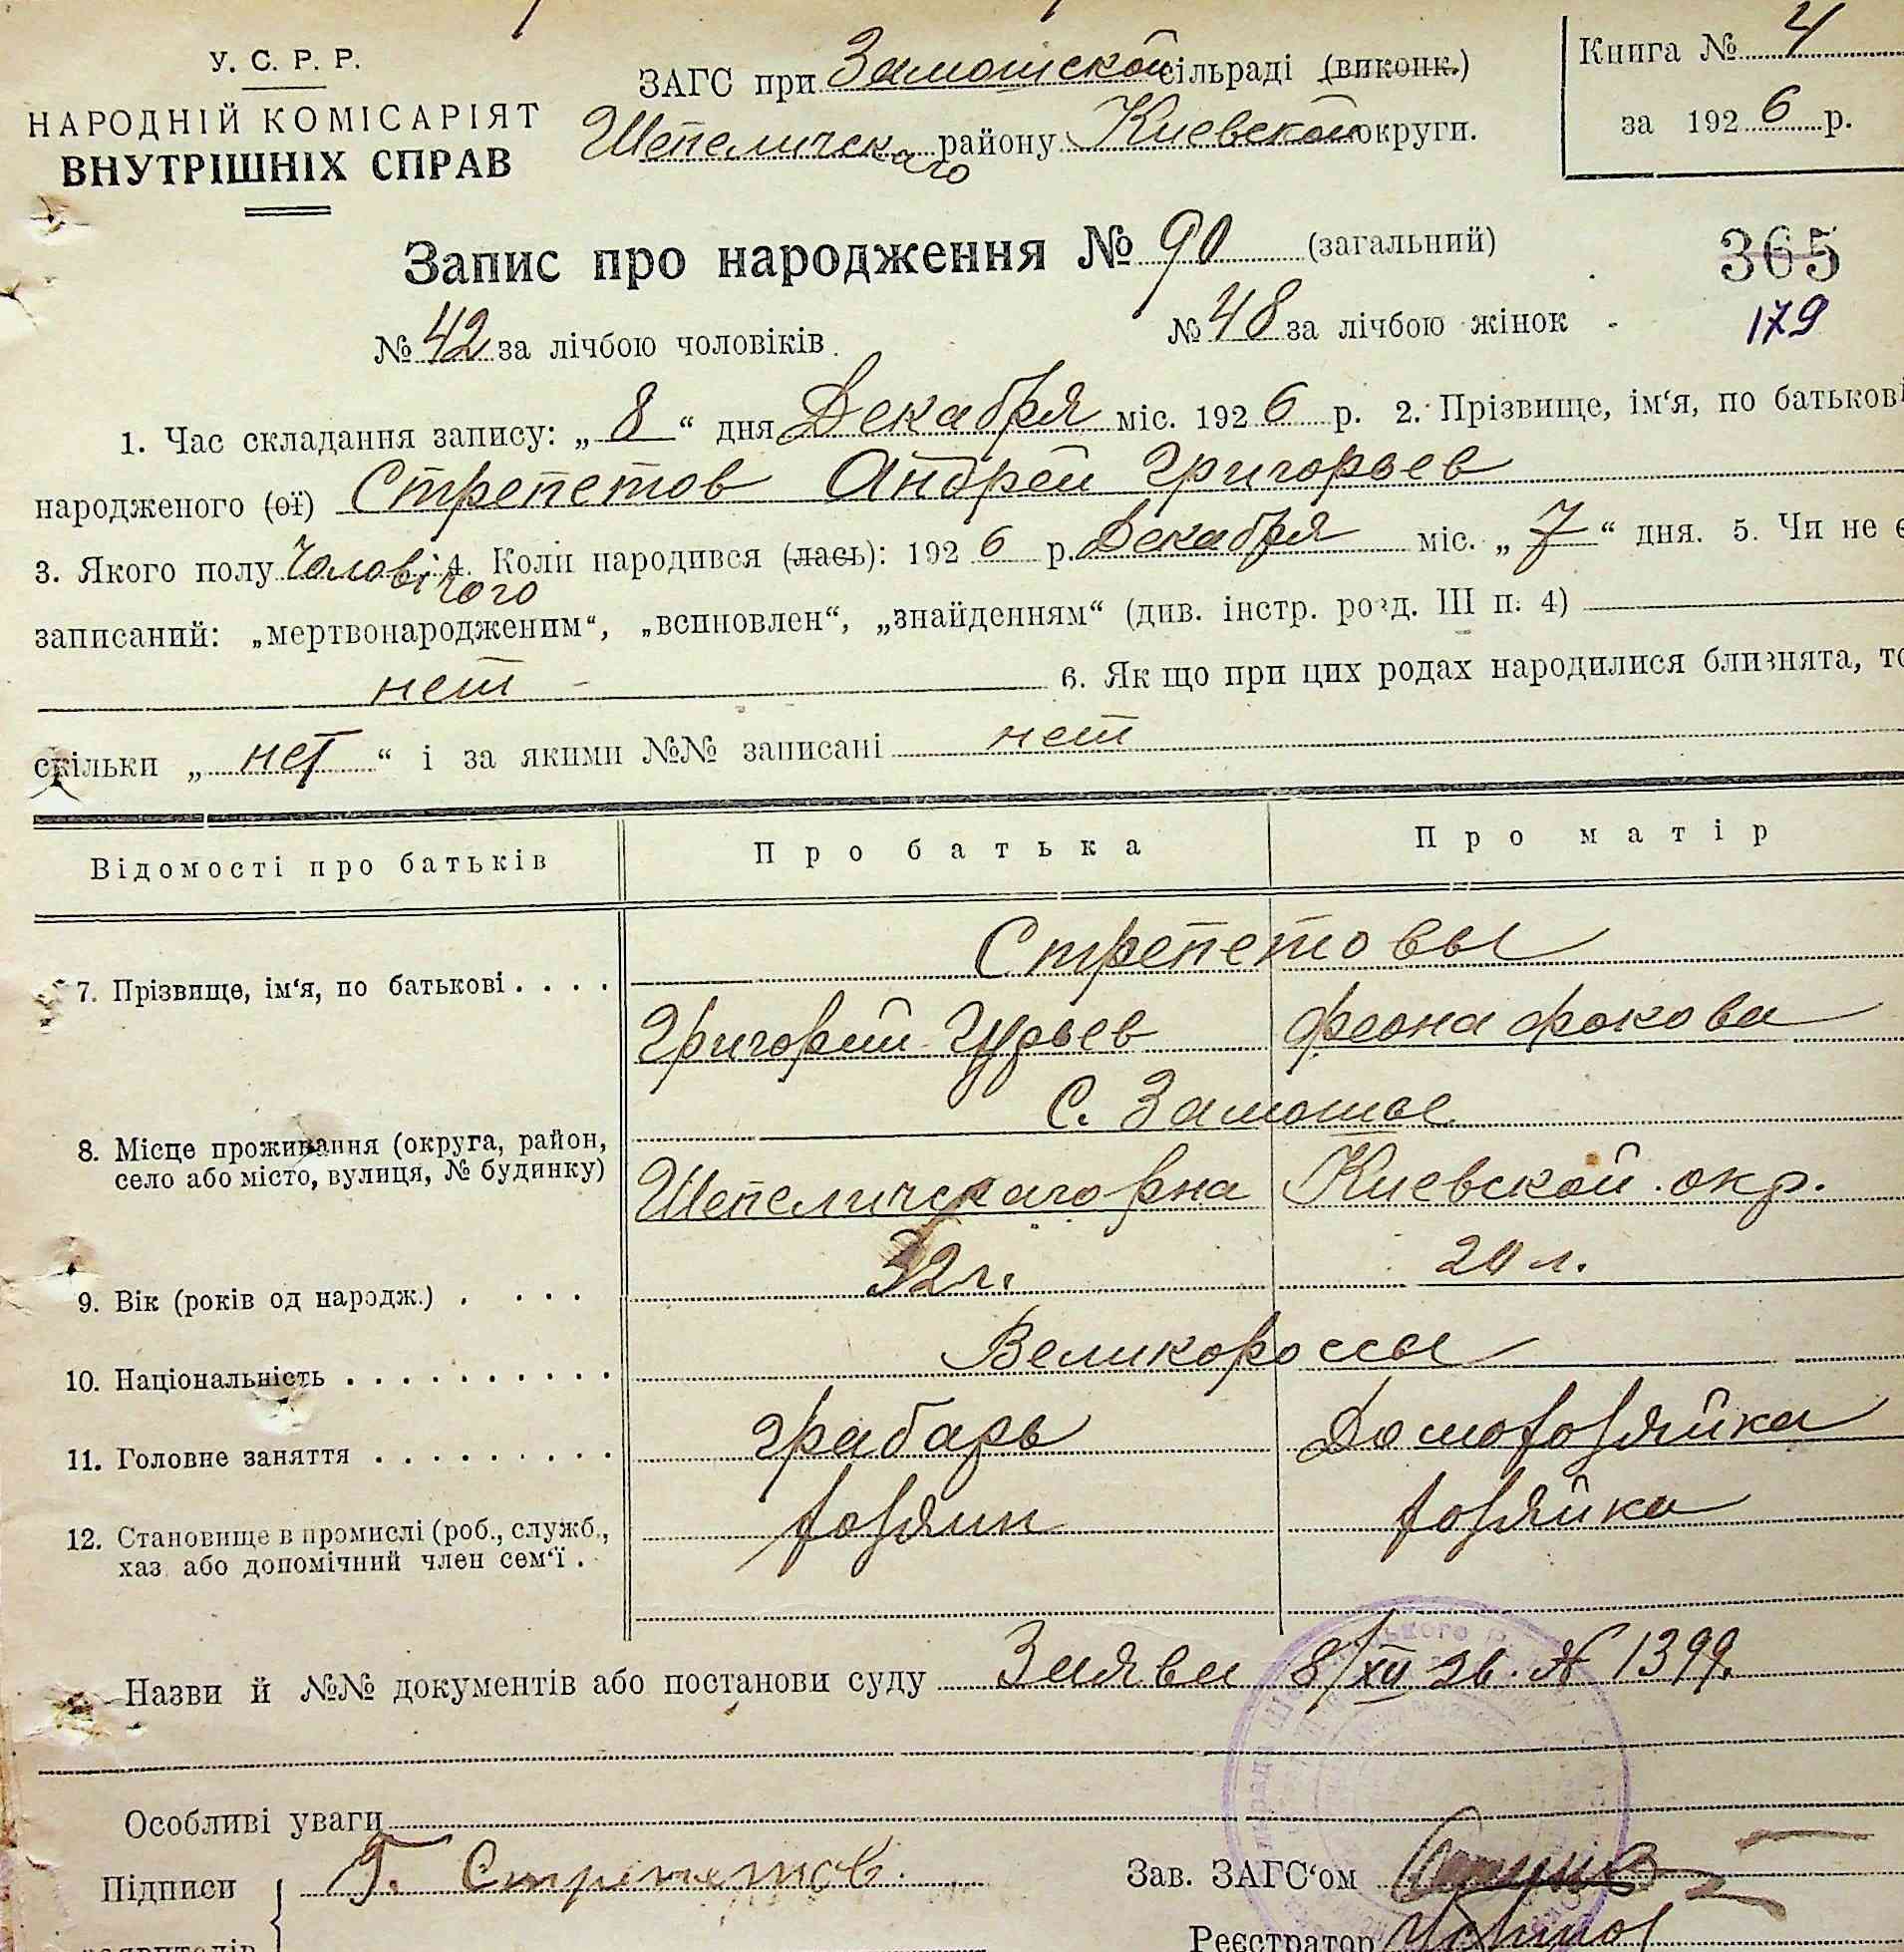 У. С. Р. Р.
НАРОДНІЙ КОМІСАРІЯТ
ВНУТРІШНІХ СПРАВ
ЗАГС при Замошской сільраді (виконк.)
Шепеличскаго району Киевской округи.
Книга № 4
за 1926 р.
Запис про народження № 90 (загальний)
365
№ 42 за лічбою чоловіків.
№ 48 за лічбою жінок
179
1. Час складання запису: „8“ дня Декабря міс. 1926 р. 2. Прізвище, ім‘я, по батькові
народженого (ої) Стрепетов Андрей Григорьев
3. Якого полу Чоловічого 4. Коли народився (лась): 1926 р. Декабря міс. „7“ дня. 5. Чи не є
записаний: „мертвонародженим“, „всиновлен“, „знайденням“ (див. інстр. розд. III п. 4)
нет 6. Як що при цих родах народилися близнята, то
скільки „нет“ і за якими №№ записані нет
Відомості про батьків
Про батька
Про матір
7. Прізвище, ім‘я, по батькові . . . .
Стрепетовы
Григорий Гурьев
Феона Фокова
8. Місце проживання (округа, район,
село або місто, вулиця, № будинку)
С. Замошье
Шепеличскаго рна Киевской окр.
9. Вік (років од народж.) . . . .
32 г.
20 л.
10. Національність . . . . . . . . . .
Великороссы
11. Головне заняття . . . . . . . . .
Грабарь
Домохозяйка
12. Становище в промислі (роб., служб.,
хаз. або допомічний член сем‘ї .
хозяин
хозяйка
Назви й №№ документів або постанови суду Заява 8/XII 26. № 1399.
Особливі уваги
Підписи
Г. Стрепетов.
Зав. ЗАГС‘ом
Реєстратор